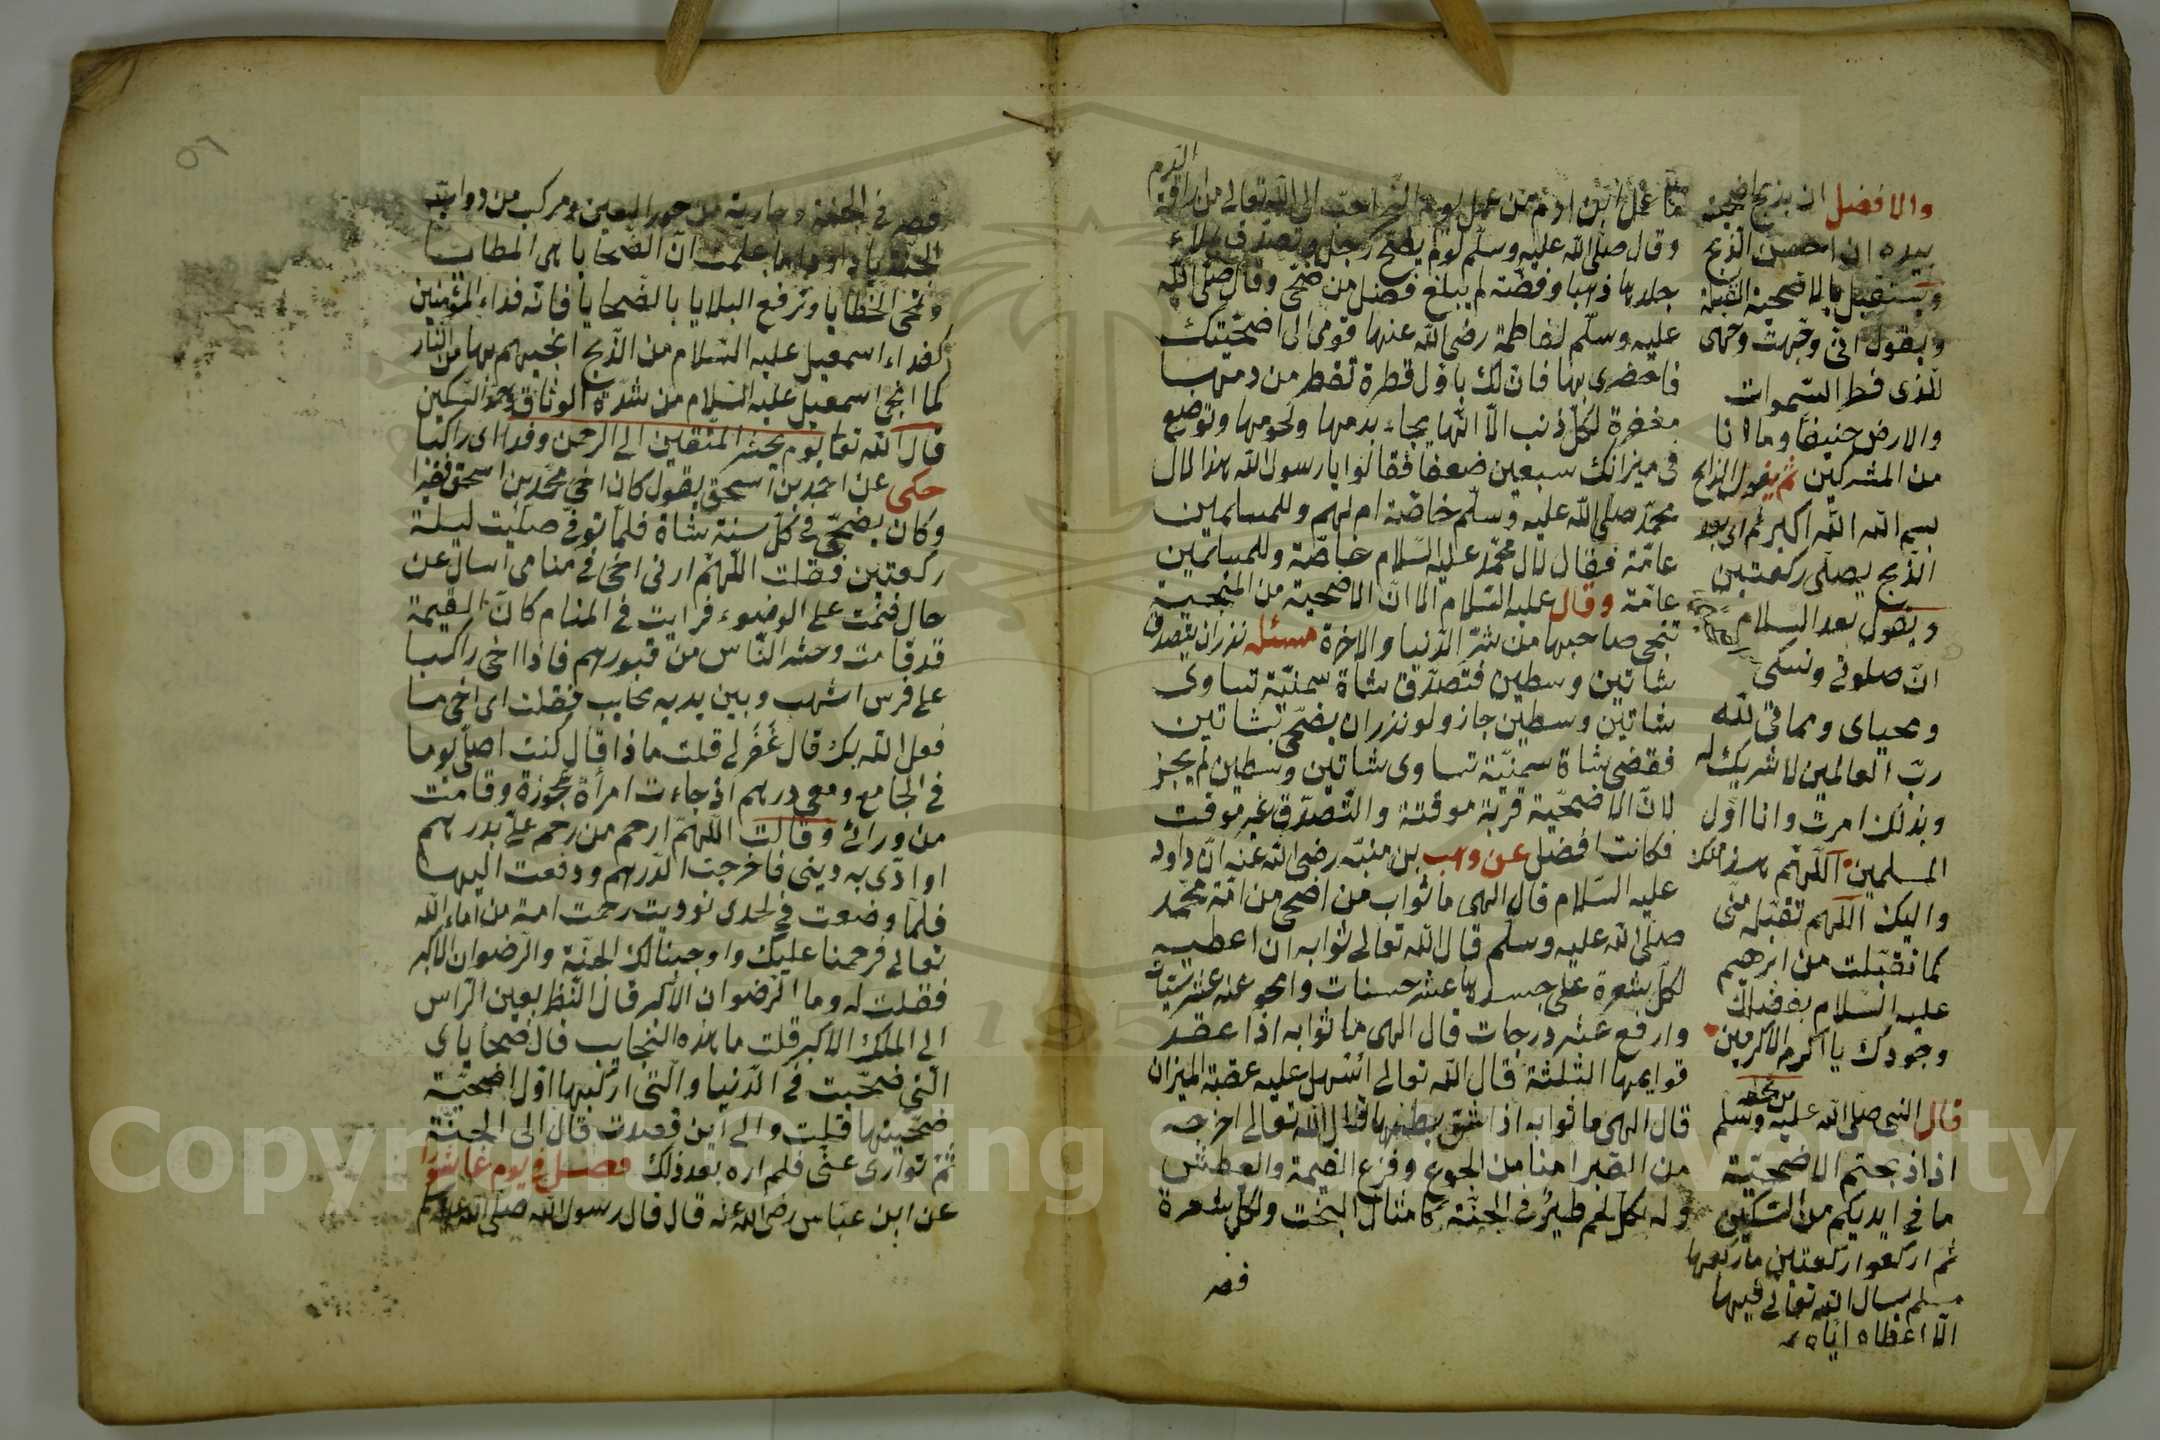 الدم
ما عمل ابن ادم من عمل يوم النحر احب الى الله تعالى من اراقة
وقال صلى الله عليه وسلم لو لم يضح رجل وتصدق بملاء
جلدها ذهبا وفضة لم يبلغ فضل من ضحى وقال صلى الله
عليه وسلم لفاطمة رضى الله عنها قومى الى اضحيتك
فاحضرى بها فان لك باول قطرة تقطر من دمها
مغفرة لكل ذنب الا انها يجاء بدمها ولحومها وتوضع
فى ميزانك سبعين ضعفا فقالوا يا رسول الله هذا لال
محمد صلى الله عليه وسلم خاصة ام لهم وللمسلمين
عامة فقال لال محمد عليه السلام خاصة وللمسلمين
عامة وقال عليه السلام الا ان الاضحية من المنجية
تنجى صاحبها من شر الدنيا والاخرة مسئله نذر ان يتصدق
بشاتين وسطين فتصدق بشاة سمنية تساوى
شاتين وسطين جاز ولو نذر ان يضحى بشاتين
فقضى بشاة سمنية تساوى شاتين وسطين لم يجز
لان الاضحية قربة موقتة والتصدق غير موقت
فكانت افضل عن وهب بن منبه رضى الله عنه ان داود
عليه السلام قال الهى ما ثواب من اضحى من امة محمد
صلى الله عليه وسلم قال الله تعالى ثوابه ان اعطيه
لكل شعرة على جسدها عشر حسنات وامحو عنه عشر سيئات
وارفع عشر درجات قال الهى ما ثوابه اذا عقد
قوايمها الثلثة قال الله تعالى اسهل عليه عقبة الميزان
قال الهى ما ثوابه اذا شق بطنها قال الله تعالى اخرجه
من القبر امنا من الجوع وفزع القيمة والعطش
وله بكل لحم طير فى الجنة كامثال البخت ولكل شعرة
قصر
والافضل ان يذبح اضحيته
بيده ان احسن الذبح
ويستقبل بالاضحية القبلة
ويقول انى وجهت وجهى
للذى فطر السموات
والارض حنيفا وما انا
من المشركين ثم يقول الذابح
بسم الله الله اكبر ثم اى بعد
الذبح يصلى ركعتين
ويقول بعد السلام
ان صلوتى ونسكى
ومحياى ومماتى لله
رب العالمين لا شريك له
وبذلك امرت وانا اول
المسلمين اللهم هذا منك
واليك اللهم تقبل منى
كما تقبلت من ابرهيم
عليه السلام بفضلك
وجودك يا اكرم الاكرمين
قال النبى صلى الله عليه وسلم
اذا ذبحتم الاضحية
ما فى ايديكم من السكين
ثم اركعوا ركعتين ما ركعها
مسلم يسال الله تعالى فيها
الا اعطاه اياه
٥٦
قصر فى الجنة وجارية من حور العين ومركب من دواب
الجنة يا داود اما علمت ان الضحايا هى المطايا
وتمحى الخطايا وترفع البلايا بالضحايا فانه فداء المؤمنين
كفداء اسمعيل عليه السلام من الذبح انجيهم بها من النار
كما انجى اسمعيل عليه السلام من شدة الوثاق وحد السكين
قال الله تعا يوم نحشر المتقين الى الرحمن وفدا اى راكبا
حكى عن احمد بن اسحق يقول كان اخى محمد بن اسحق فقيرا
وكان يضحى فى كل سنة بشاة فلما توفى صليت ليلة
ركعتين فقلت اللهم ارنى اخى فى منامى اسال عن
حال فنمت على الوضوء فرايت فى المنام كان القيمة
قد قامت وحشر الناس من قبورهم فاذا اخى راكبا
على فرس اشهب وبين يديه نجايب فقلت اى اخى ما
فعل الله بك قال غفر لى قلت ما ذا قال كنت اصلى يوما
فى الجامع ومعى درهم اذ جاءت امرأة عجوزة وقامت
من ورائى وقالت اللهم ارحم من رحم على بدرهم
اوادى به دينى فاخرجت الدرهم ودفعت اليها
فلما وضعت فى لحدى نوديت رحمت امة من اماء الله
تعالى فرحمنا عليك واوجبنا لك الجنة والرضوان الاكبر
فقلت له وما الرضوان الاكبر قال النظر بعين الراس
الى الملك الاكبر قلت ما هذه النجايب قال ضحاياى
التى ضحيت فى الدنيا والتى اركبها اول اضحية
ضحيتها قلت والى اين قصدت قال الى الجنة
ثم توارى عنى فلم اره بعد ذلك فصل فى يوم عاشورا
عن ابن عباس رضى الله عنه قال قال رسول الله صلى الله عليه وسلم
Copyright © King Saud University
1957